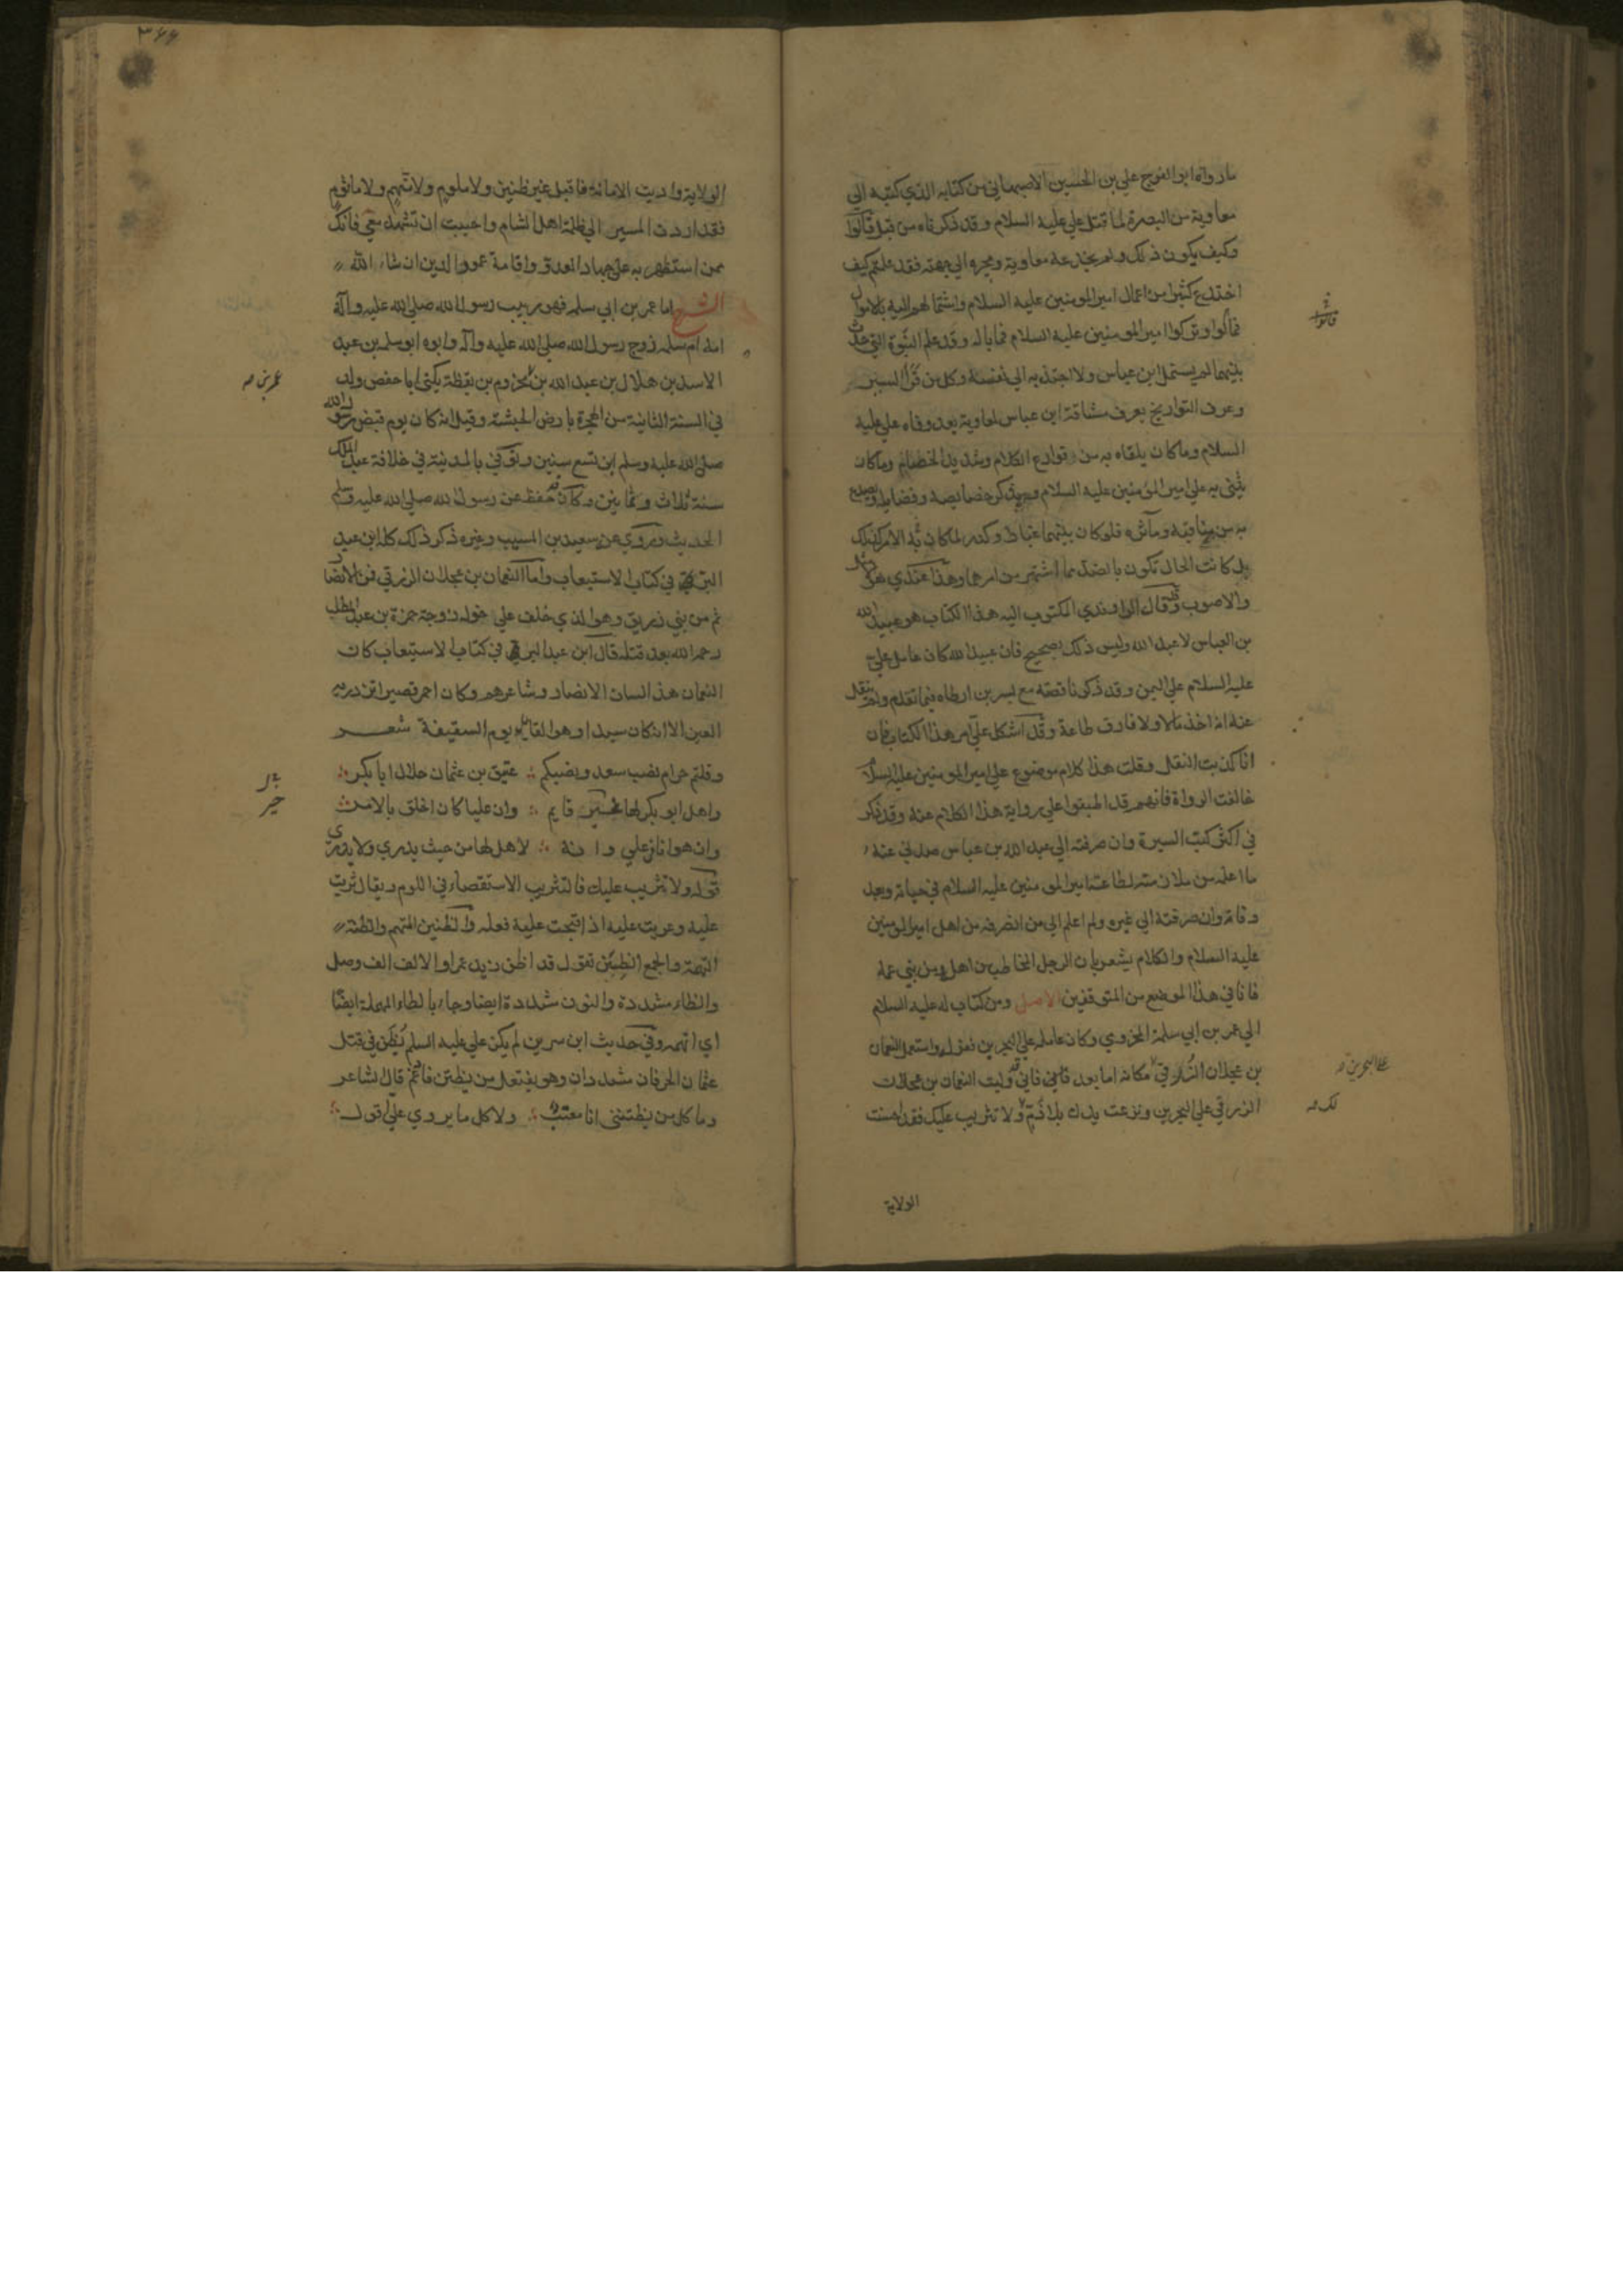 ما رواه ابو الفرج علي بن الحسين الاصبهاني من كتابه الذي كتبه الي
معاوية من البصرة لما قتل علي عليه السلام وقد ذكرناه من قبل قالوا
وكيف يكون ذلك ولم يخدعه معاوية ويجره الي جهته فقد علمتم كيف
اختدع كثيرا من اعمال امير المومنين عليه السلام واستمالهم اليه بالاموال
فمالوا وتركوا امير المومنين عليه السلام فما باله وقد علم النبوة التي حدثت
بينهما لم يستمل ابن عباس ولا اجتذبه الي نفسه وكل من قرأ السير
وعرف التواريخ يعرف مشاقة ابن عباس لمعاوية بعد وفاه علي عليه
السلام وما كان يلقاه به من قوارع الكلام وشديد الخصام وما كان
يثني به علي امير المؤمنين عليه السلام ويذكر خصايصه وفضايله ويصدع
به من مناقبه ومآثره فلو كان بينهما غبار وكدر لما كان الامر كذلك
بل كانت الحال تكون بالضد مما اشتهر من امرهما وهذا عندي هو
والاصوب وقد قال الراوندي المكتوب اليه هذا الكتاب هو عبيد الله
بن العباس لا عبد الله وليس ذلك بصحيح فان عبيد الله كان عامل علي
عليه السلام علي اليمن وقد ذكرنا قصته مع بسر بن ارطاه فيما تقدم ولم ينقل
عنه انه اخذ مالا ولا فارق طاعة وقد اشكل علي امر هذا الكتاب فان
انا كذبت النقل وقلت هذا كلام موضوع علي امير المومنين عليه السلام
خالفت الرواة فانهم قد اطبقوا علي رواية هذا الكلام عنه وقد ذكر
في اكثر كتب السيرة وان صرفته الي عبد الله بن عباس صدني عنه
ما اعلمه من ملازمته لطاعة امير المومنين عليه السلام في حياته وبعد
وفاته وان صرفته الي غيره ولم اعلم الي من اصرفه من اهل امير المومنين
عليه السلام والكلام يشعر بان الرجل المخاطب من اهله ومن بني عمه
فانا في هذا الموضع من المتوقفين الاصل ومن كتاب له عليه السلام
الي عمر بن ابي سلمة المخزومي وكان عامله علي البحرين فعزله واستعمل النعمان
بن عجلان الزرقي مكانه اما بعد فاني قد وليت النعمان بن عجلان
الزرقي علي البحرين ونزعت يدك بلا ذم ولا تثريب عليك فقد احسنت
الولاية
قالوا
علي البحرين
لك
٣٦٦
الولاية واديت الامانة فاقبل غير ظنين ولا ملوم ولا متهم ولا ماثوم
فقد اردت المسير الي ظلمة اهل الشام واحببت ان تشهد معي فانك
ممن استظهر به علي جهاد العدو واقامة عمود الدين ان شاء الله
الشرح اما عمر بن ابي سلمه فهو ربيب رسول الله صلي الله عليه وآله
امه ام سلمه زوج رسول الله صلي الله عليه وآله وابوه ابو سلمه بن عبد
الاسد بن هلال بن عبد الله بن مخزوم بن يقظة يكني ابا حفص ولد
في السنة الثانية من الهجرة بارض الحبشة وقيل انه كان يوم قبض رسول الله
صلي الله عليه وسلم ابن تسع سنين وتوفي بالمدينة في خلافة عبد الملك
سنة ثلاث وثمانين وكان قد حفظ عن رسول الله صلي الله عليه وسلم
الحديث وروي عنه سعيد بن المسيب وغيره ذكر ذلك كله ابن عبد
البر في كتاب الاستيعاب واما النعمان بن عجلان الزرقي فمن الانصار
ثم من بني زريق وهو الذي خلف علي خوله زوجة حمزة بن عبد المطلب
رحمه الله بعد قتله قال ابن عبد البر في كتاب الاستيعاب كان
النعمان هذا لسان الانصار وشاعرهم وكان احمر قصيرا تزدريه
العين الا انه كان سيدا وهو القايل يوم السقيفة شعر
وقلتم حرام نصب سعد ونصبكم ؞ عتيق بن عثمان حلال ابا بكر
واهل ابو بكر لها خير قايم ؞ وان عليا كان اخلق بالامر
وان هوانا في علي وانه ؞ لاهل لها من حيث يدري ولا يدري
قوله ولا تثريب عليك فالتثريب الاستقصاء في اللوم ويقال ثربت
عليه وعربت عليه اذا قبحت عليه فعله والظنين المتهم والظنة
التهمة والجمع الظنن تقول قد اظن زيد عمرا والالف الف وصل
والظاء مشددة والنون مشددة ايضا وجاء بالطاء المهملة ايضا
اي اتهمه وفي حديث ابن سيرين لم يكن علي عليه السلم يظن في قتل
عثمان الحرفان مشددان وهو يفتعل من يظتن فادغم قال الشاعر
وما كل من يظنني انا معتب ؞ ولا كل ما يروي علي اقول
عمر بن
خير